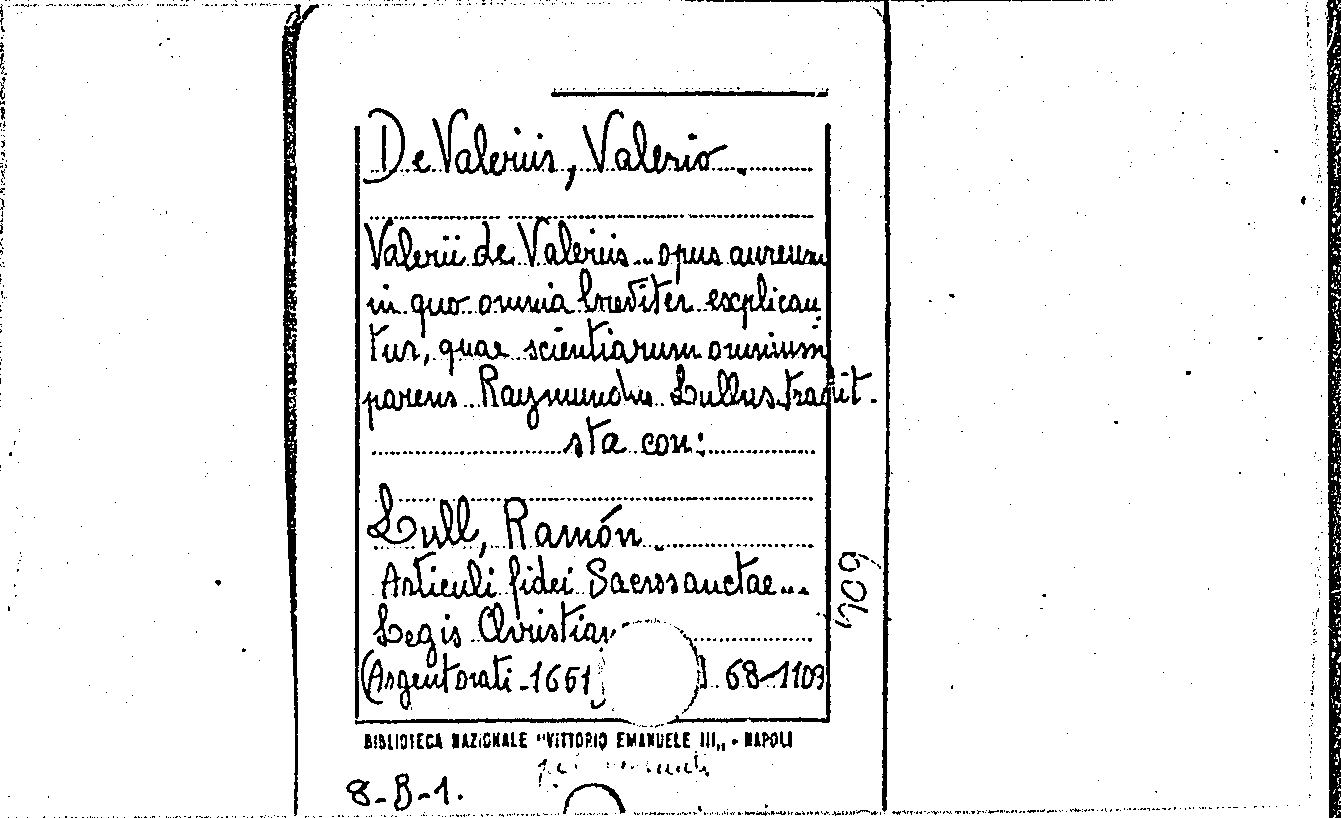 De Valeriis, Valerio.
Valerii de Valeriis... opus aureum
in quo omnia breviter explican
tur, quae scientiarum omnium
parens Raymundus Lullus tradit.
sta con:
Lull, Ramón.
Articuli fidei Sacrosanctae...
Legis Christian
(Argentorati-1651
). 68-1103
604
BIBLIOTECA NAZIONALE "VITTORIO EMANUELE III„ - NAPOLI
8-B-1.